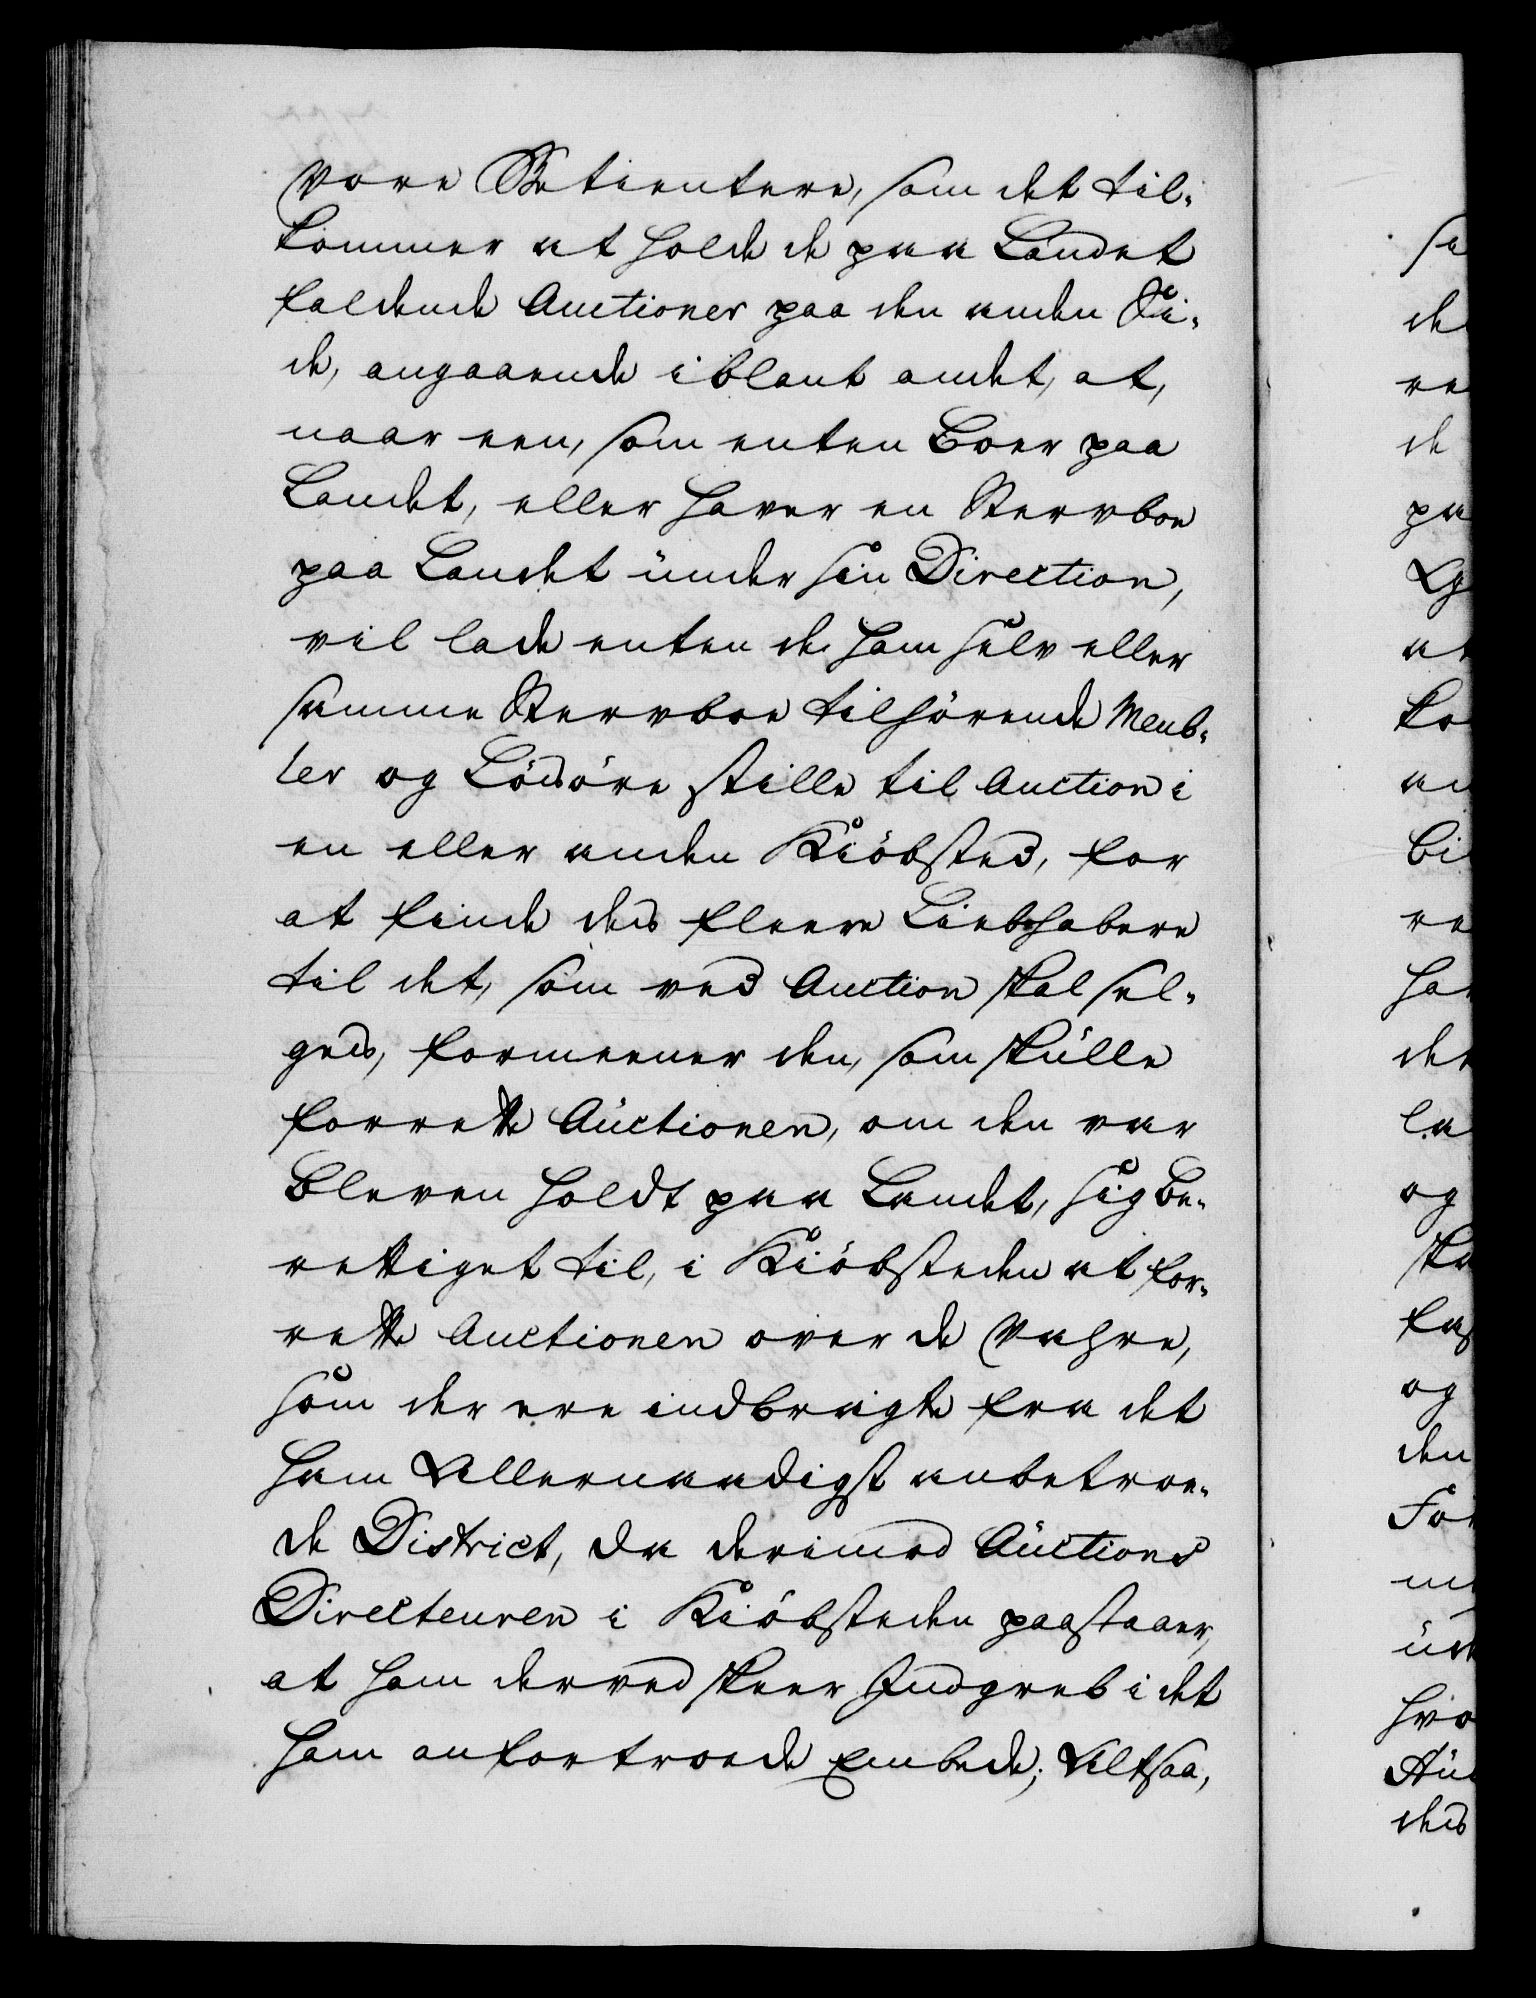 vore Betientere, som det til-
kommer at holde de paa Landet
faldende Auctioner paa den anden Si-
de, angaaende iblant andet, at,
naar een, som enten boer paa
Landet, eller haver en Stervboe
paa Landet under sin Direction,
vil lade enten de ham selv eller
samme Stervboe tilhörende Meub-
ler og Lösöre stille til Auction i
en eller anden Kiöbsted, for
at finde des fleere Liebhabere
til det, som ved Auction skal sel-
ges, formeener den, som skulle
forrette Auctionen, om den var
bleven holdt paa Landet, sig be-
rettiget til, i Kiöbsteden at for-
rette Auctionen over de Vahre,
som der ere indbragte fra det
ham Allernaadigst anbetroe-
de District, da derimod Auctions
Directeuren i Kiöbsteden paastaaer,
at ham derved skeer Indgreb i det
ham anfortroede Embede; Altsaa,